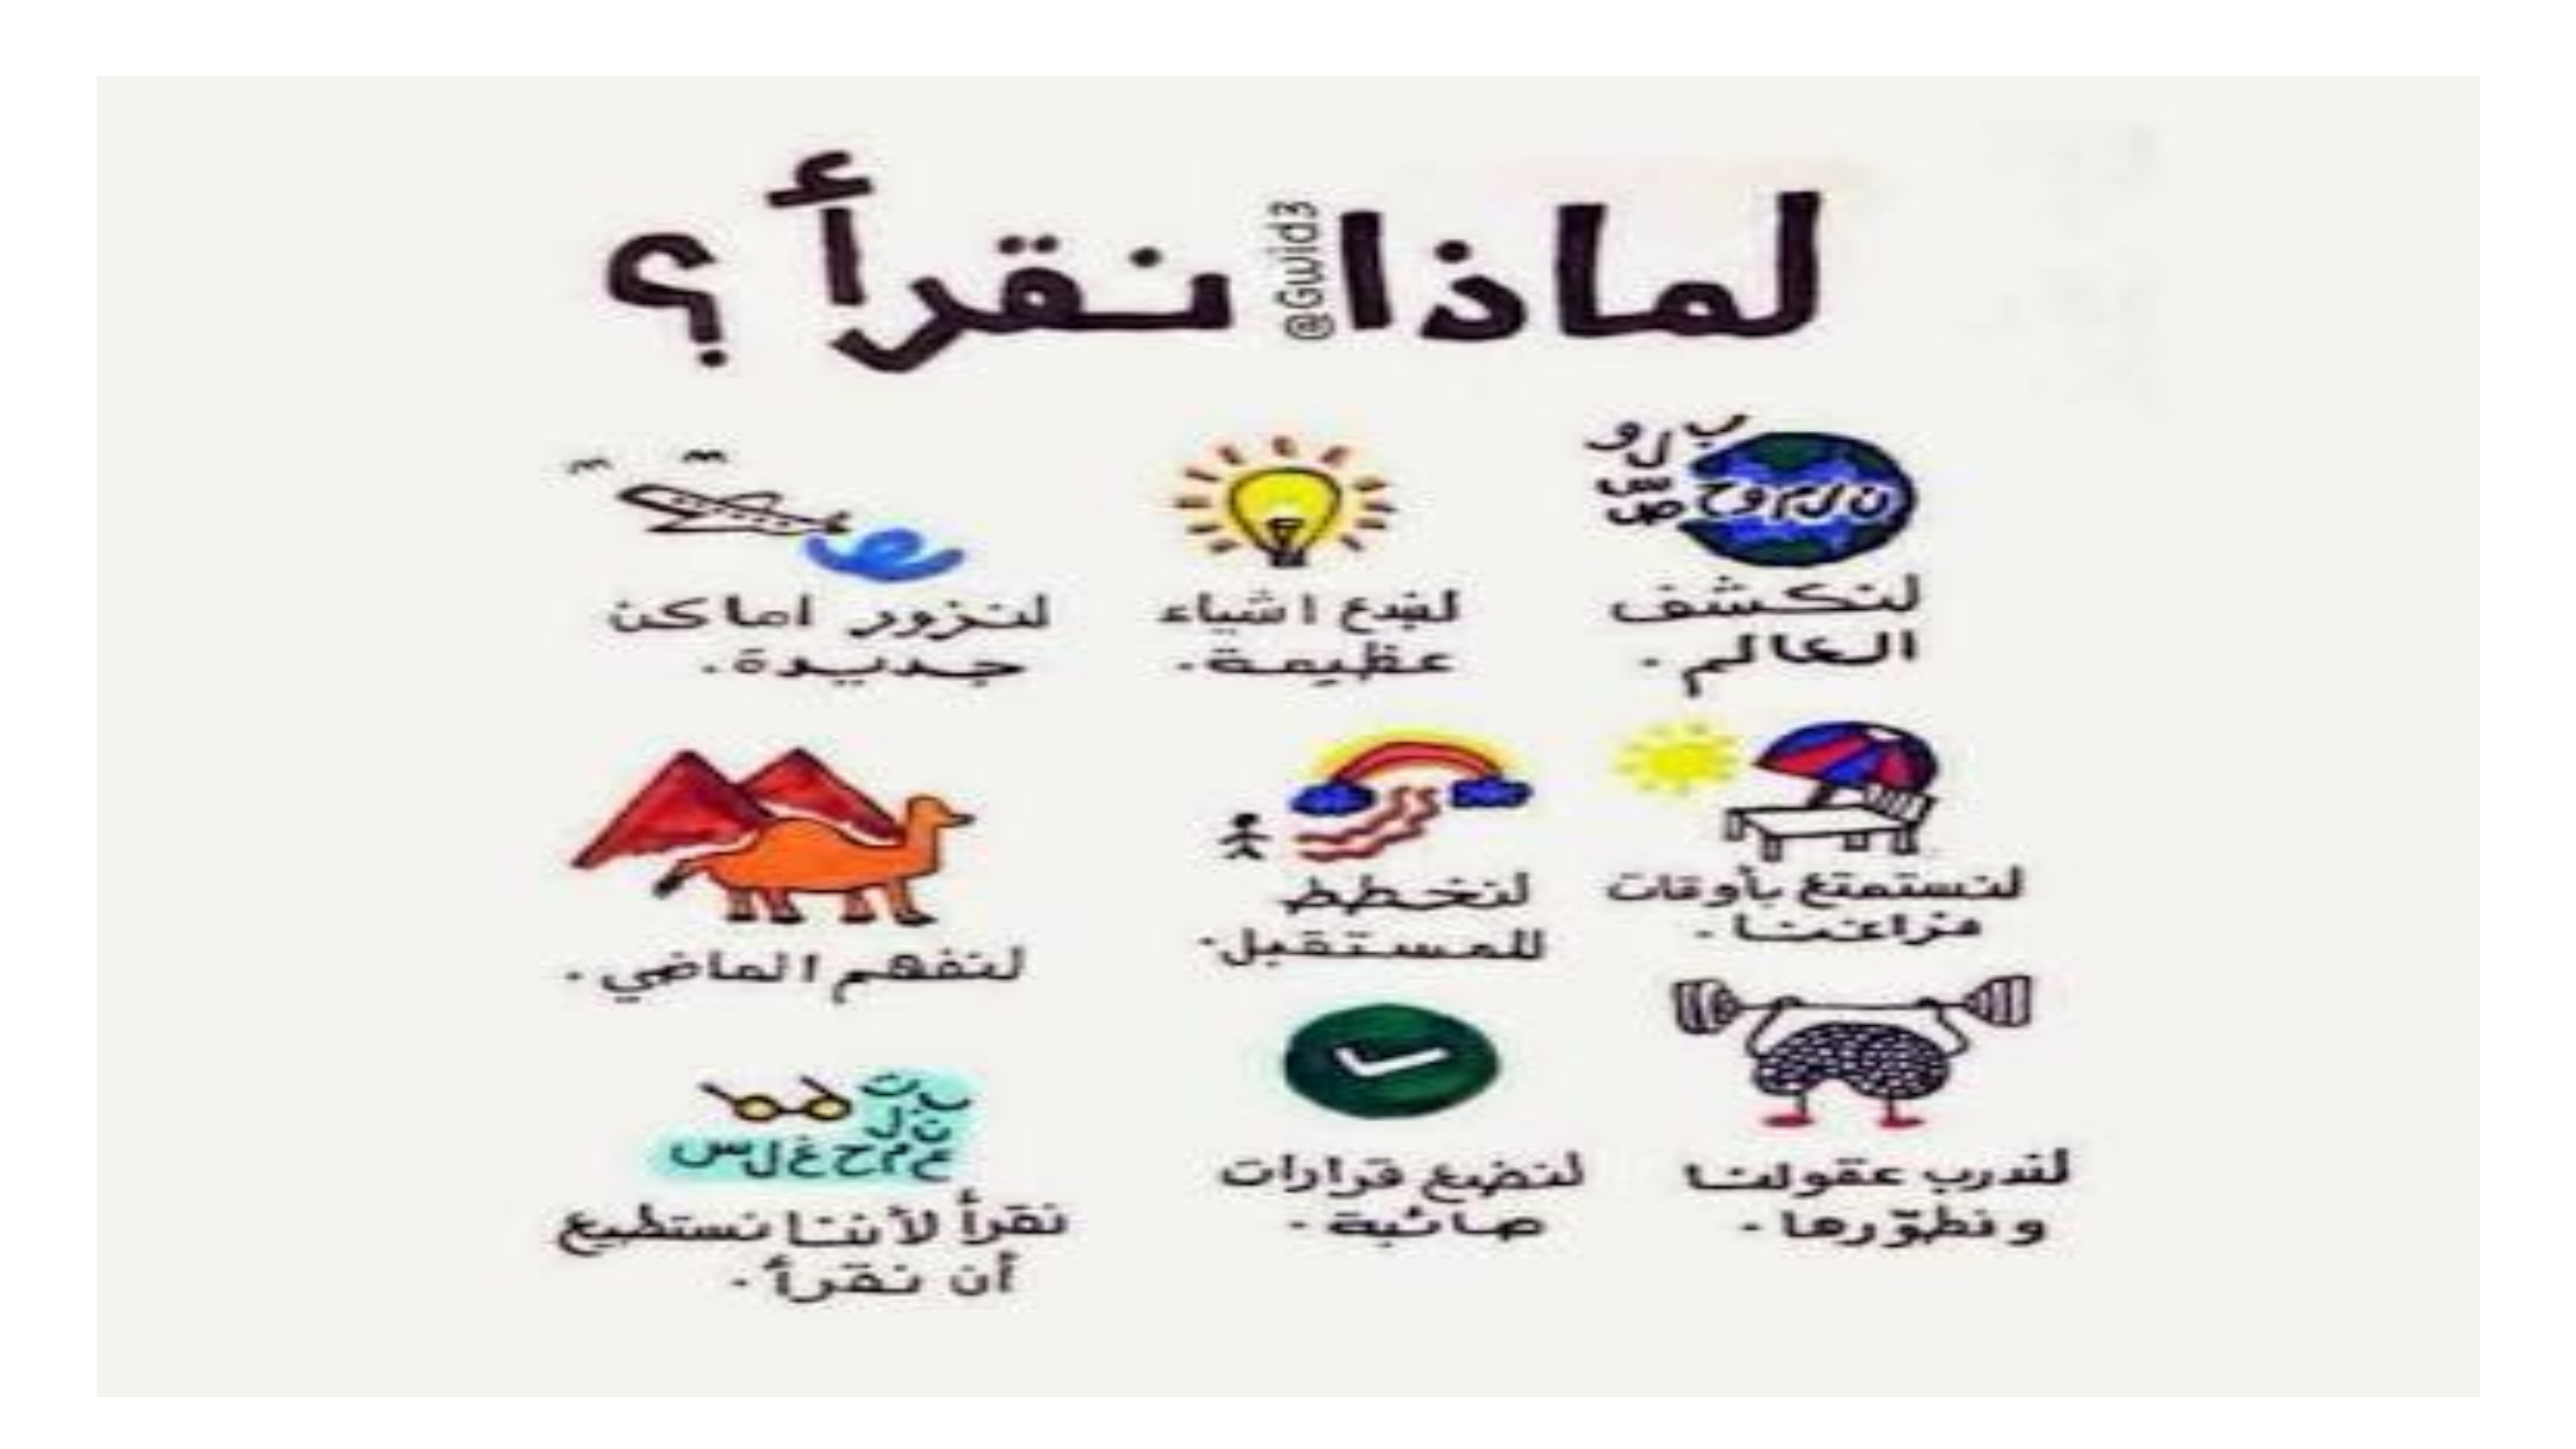 لماذا نقرأ ؟
@Gwid3
لنكشف
العالم .
لنبدع اشياء
عظيمة .
لنزور اماكن
جديدة .
لنستمتع بأوقات
فراغنا .
لنخطط
للمستقبل .
لنفهم الماضي .
لندرب عقولنا
و نطوّرها .
لنضع قرارات
صائبة .
نقرأ لأننا نستطيع
أن نقرأ .